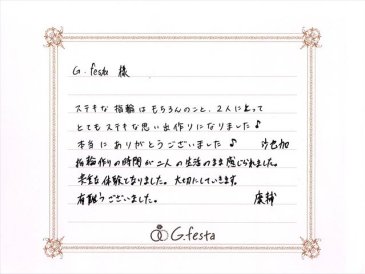 G.festa 様
ステキな指輪はもちろんのこと、2人にとって
とてもステキな思い出作りになりました♪
本当にありがとうございました♪ 沙也加
指輪作りの時間が二人の生活のまま感じられました。
貴重な体験となりました。大切にしていきます。
有難うございました。 康補
G.festa